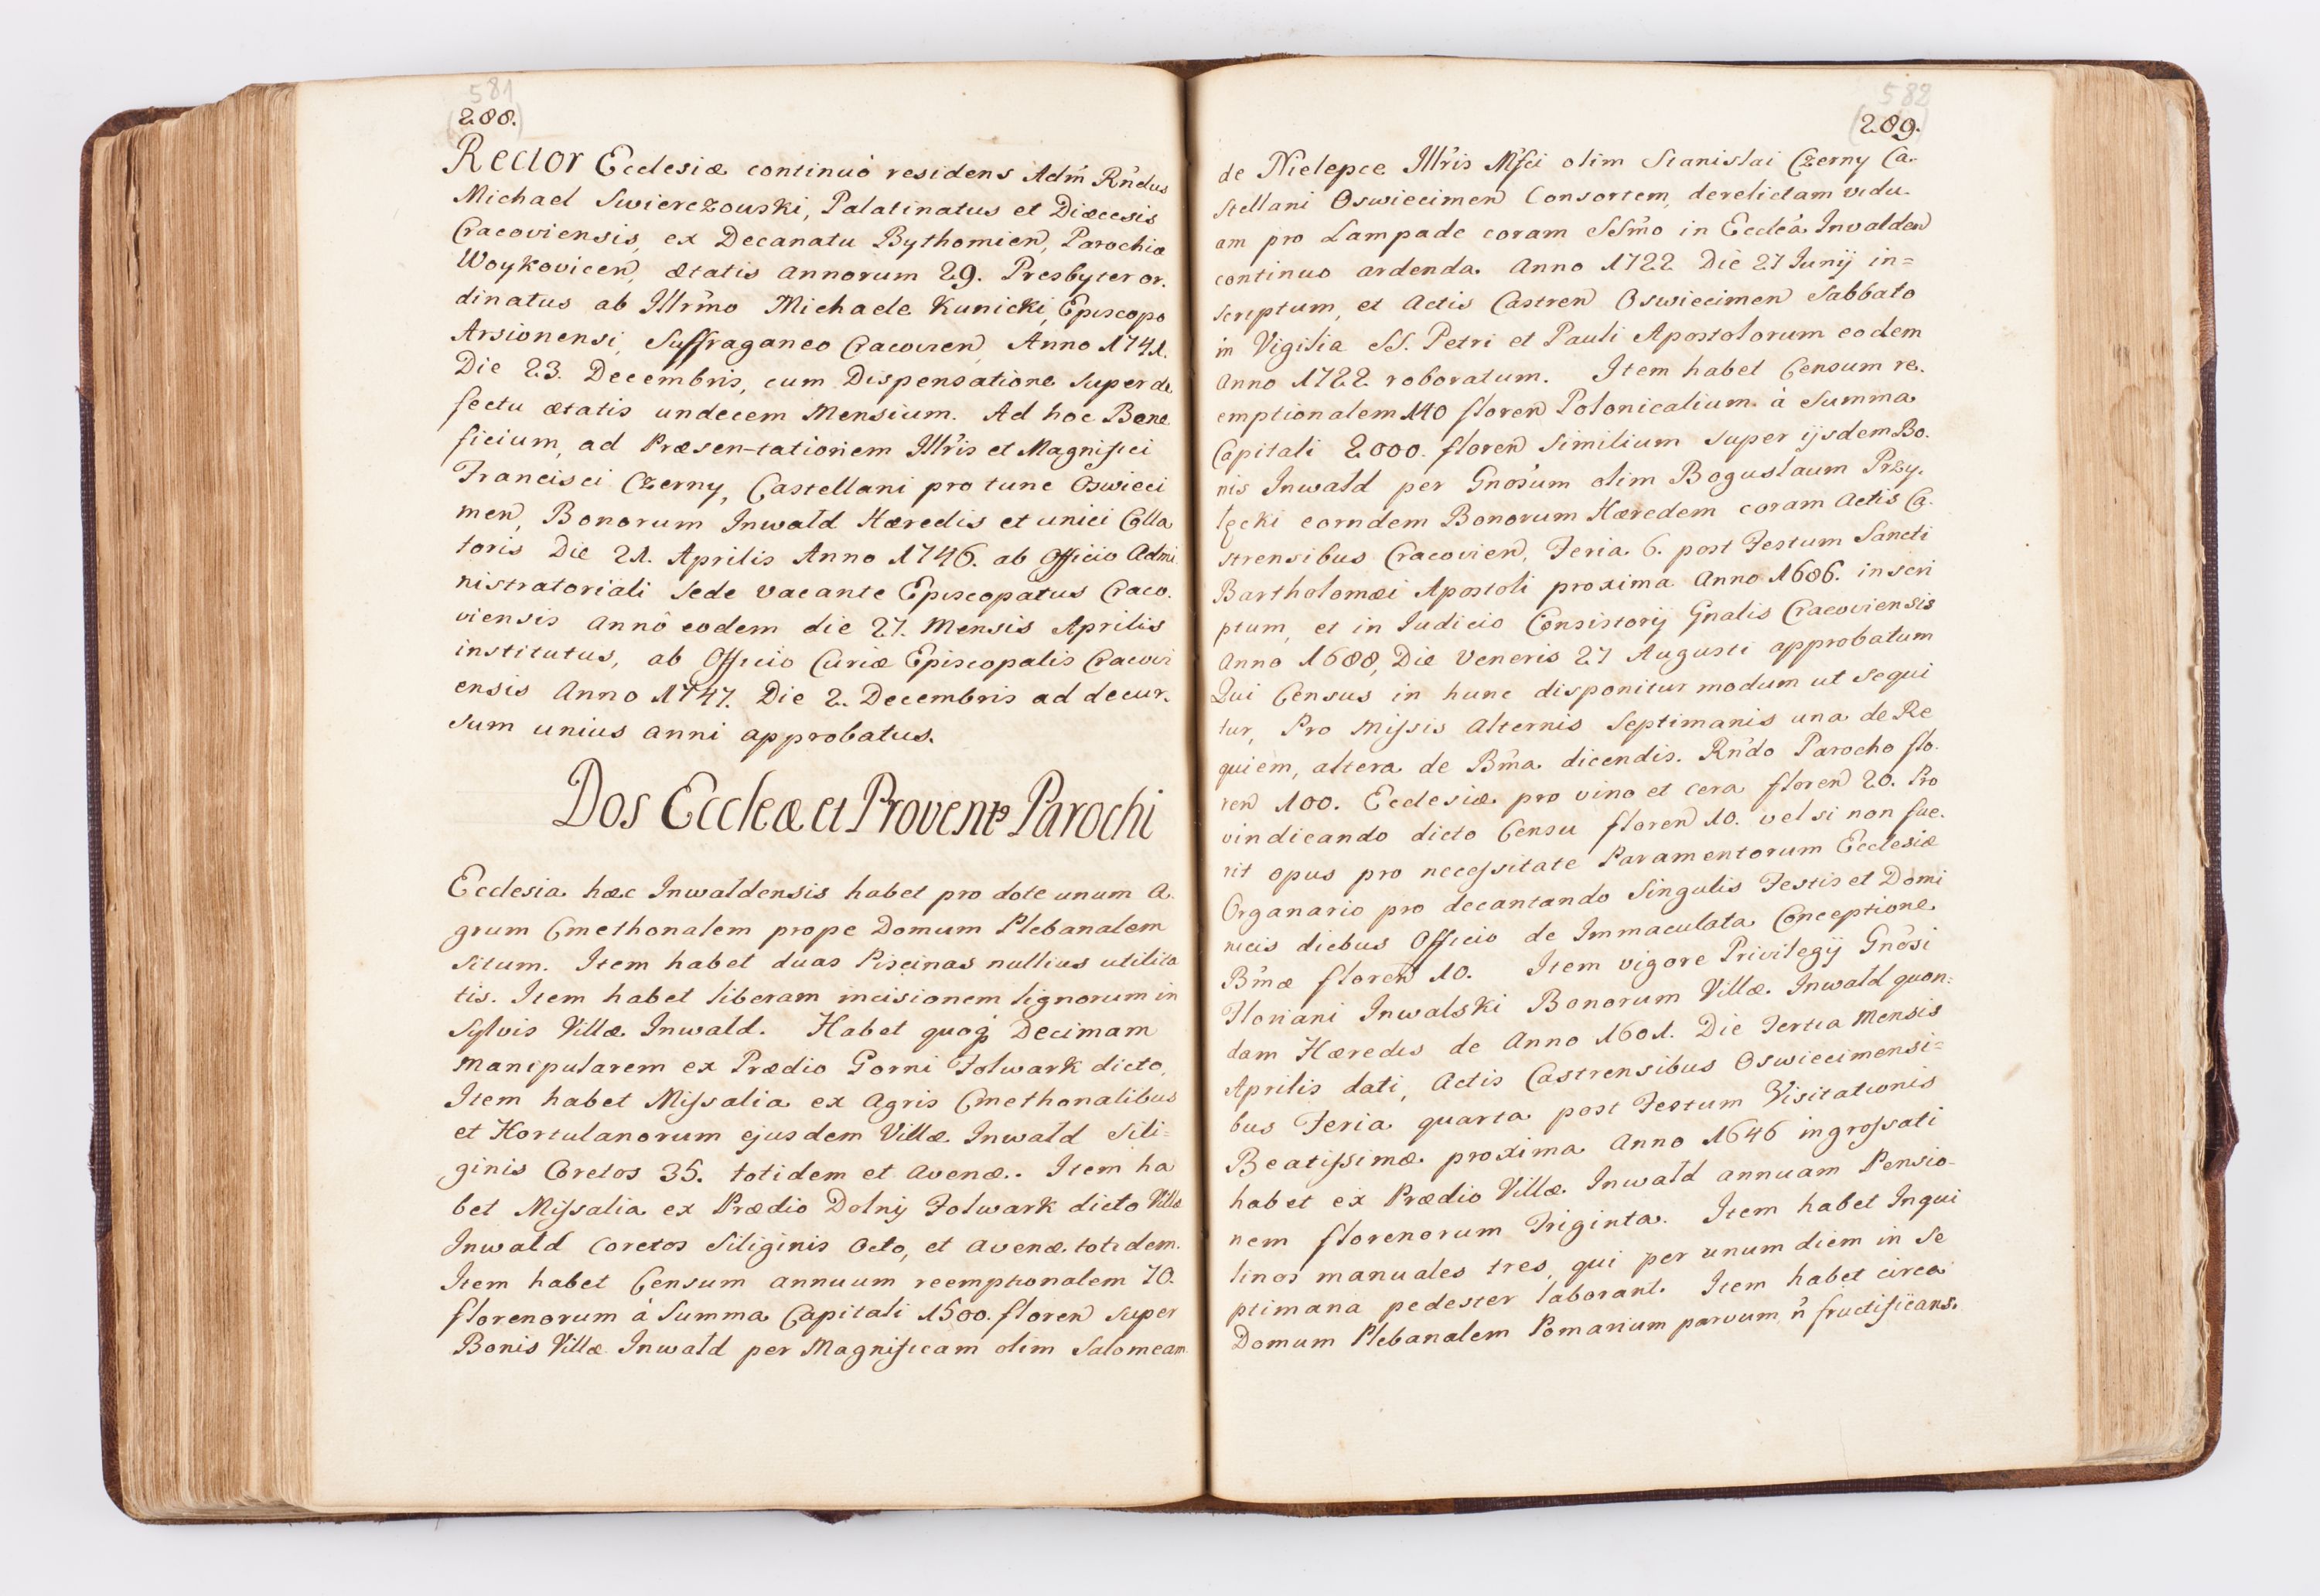 581
(288.)
Rector Ecclesiæ continuò residens Adm̃ Rñdus
Michael Swierczowski, Palatinatus et Diæcesis
Cracoviensis, ex Decanatu Bythomien, Parochia
Woykovicen, ætatis annorum 29. Presbyter or.
dinatus ab Illr̃mo Michaele Kunicki, Episcopo
Arsionensi, Suffraganeo Cracovien, Anno 1741.
Die 23. Decembris, cum Dispensatione super de
fectu ætatis undecem Mensium. Ad hoc Bene
ficium, ad Præsen-tationem Illr̃is et Magnifici
Francisci Czerny, Castellani pro tunc Oswieci
men, Bonorum Inwald Hæredis et unici Colla
toris Die 21. Aprilis Anno 1746. ab Officio Admi
nistratoriali Sede vacante Episcopatus Craco.
viensis annô eodem die 27. Mensis Aprilis
institutus, ab Officio Curiæ Episcopalis Cracovi
ensis Anno 1747. Die 2. Decembris ad decur.
sum unius anni approbatus.
Dos Eccleæ et Provent9 Parochi
Ecclesia hæc Inwaldensis habet pro dote unum a.
grum Cmethonalem prope Domum Plebanalem
situm. Item habet duas Piscinas nullius utilita
tis. Item habet liberam incisionem lignorum in
Sylvis Villæ Inwald. Habet quoq́ Decimam
Manipularem ex Prædio Gorni Folwark dicto,
Item habet Missalia ex Agris Cmethonalibus
et Hortulanorum ejusdem Villæ Inwald Sili=
ginis Coretos 35. totidem et avenæ. Item ha
bet Missalia ex Prædio Dolny Folwark dicto Villæ
Inwald coretos Siliginis octo, et avenæ totidem.
Item habet Censum annuum reemptionalem 70.
florenorum à Summa Capitali 1500. floren super
Bonis Villæ Inwald per Magnificam olim Salomeam
582
(289.)
de Nielepce Illr̃is Mf̃ci olim Stanislai Czerny Ca.
stellani Oswiecimen Consortem, derelictam vidu.
am pro Lampade coram SSm̃o in Eccleã Inwalden
continuo ardenda. Anno 1722 Die 27 Junij in=
scriptum, et Actis Castren Oswiecimen Sabbato
in Vigilia SS. Petri et Pauli Apostolorum eodem
Anno 1722 roboratum. Item habet Censum re.
emptionalem 140 floren Polonicalium à Summa
Capitali 2000. floren similium super ijsdem Bo.
nis Inwald per Gnosũm olim Boguslaum Przy.
lęcki eorndem Bonorum Hæredem coram Actis Ca.
strensibus Cracovien, Feria 6. post Festum Sancti
Bartholomæi Apostoli proxima Anno 1686. inscri
ptum, et in Judicio Consistorij Gnalis Cracoviensis
Anno 1688, Die Veneris 27 Augusti approbatum
Qui Census in hunc disponitur modum ut sequi
tur, Pro Missis alternis Septimanis una de Re
quiem, altera de Bm̃a dicendis. Rñdo Parocho flo.
ren 100. Ecclesiæ pro vino et cera floren 20. Pro
vindicando dicto Censu floren 10. vel si non fue.
rit opus pro necessitate Paramentorum Ecclesiæ
Organario pro decantando Singulis Festis et Domi
nicis diebus Officio de Immaculata Conceptione
Bm̃æ floren 10. Item vigore Privilegij Gnõsi
Floriani Inwalski Bonorum Villæ Inwald quon=
dam Hæredis de Anno 1601. Die Tertia Mensis
Aprilis dati, Actis Castrensibus Oswiecimensi=
bus Feria quarta post Festum Visitationis
Beatissimæ proxima Anno 1646 ingrossati
habet ex Prædio Villæ Inwald annuam Pensio-
nem florenorum Triginta. Item habet Inqui
linos manuales tres, qui per unum diem in Se
ptimana pedester laborant. Item habet circa
Domum Plebanalem Pomarium parvum ñ fructificans.